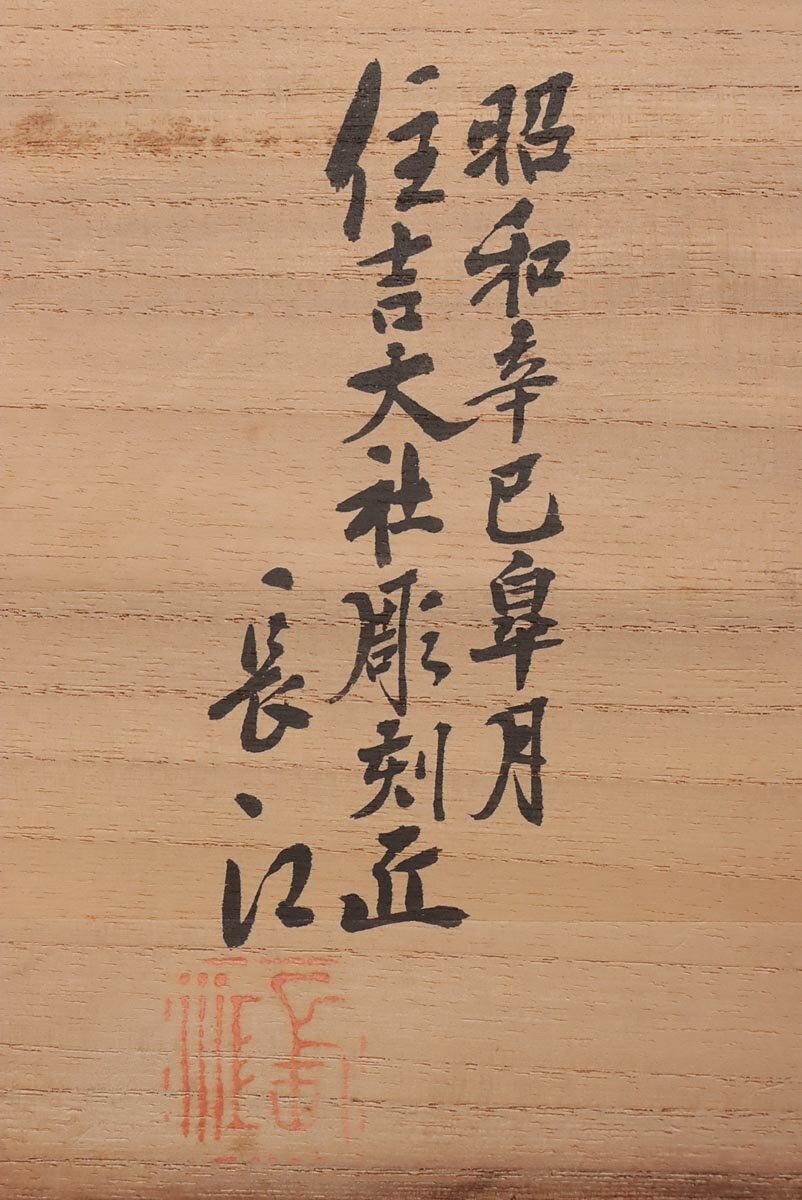 昭和辛巳皐月
住吉大社彫刻匠
長江